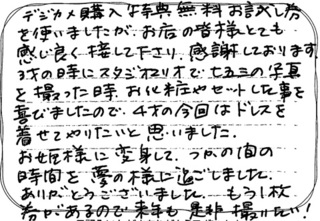 デジカメ購入特典無料お試し券
を使いましたが、お店の皆様とても
感じ良く接して下さり、感謝しております。
3才の時にスタジオマリオで七五三の写真
を撮った時、お化粧やセットした事を
喜びましたので、4才の今回はドレスを
着せてやりたいと思いました。
お姫様に変身して、つかの間の
時間を夢の様に過ごしました。
ありがとうございました。もう1枚
券があるので来年も是非撮りたい!